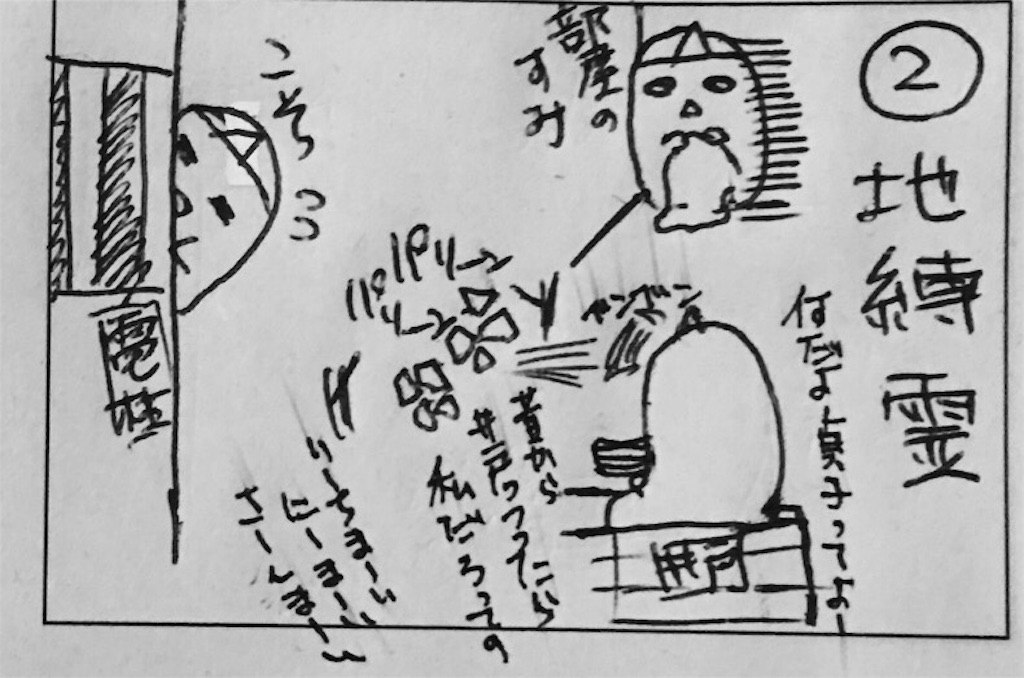 ②
地縛霊
部屋の
すみ
何だよ貞子ってよー
ザンボン
昔から
井戸っつったら
私だろっての
井戸
パリーン
パリーン
いーちまーい
にーまーい
さーんまーい
こそっ
電柱